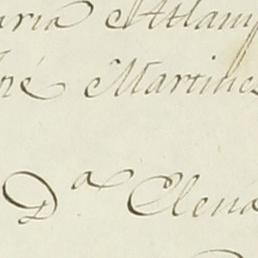 aria Altam
sé Martinez
D.ª Elena